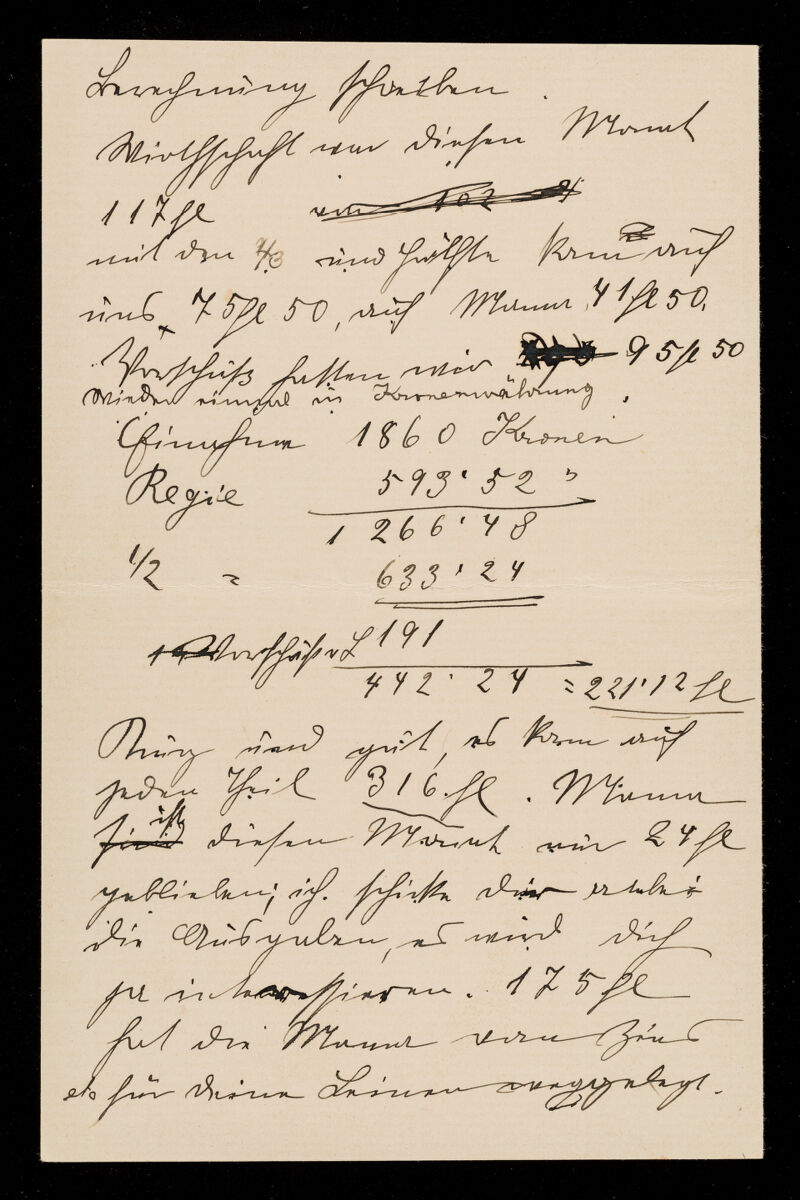 Berechnung schreiben.
Wirthschaft war diesen Monat
117 fl von 102 fl
mit den 2/3 und Hälfte kam auf
uns 75 fl 50, auf Mama 41 fl 50.
Vorschuß hatten wir 95 fl 50
wieder einmal in Kronenwährung.
Einnahme 1860 Kronen
Regie 593·52 "
1266·48
1/2 = 633·24
Vorschuß 191
442·24 = 221·12 fl
Kurz und gut, es kam auf
jeden Theil 316 fl. Mama
sind ist diesen Monat nur 24 fl
geblieben; ich schicke dir anbei
die Ausgaben, es wird dich
ja interessieren. 175 fl
hat die Mama vom Zins
für deine Leinen weggelegt.